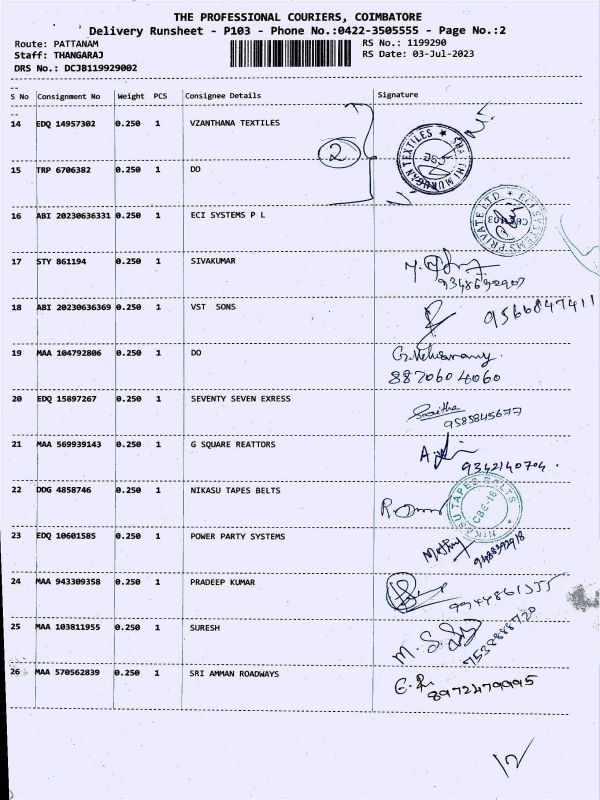 THE PROFESSIONAL COURIERS, COIMBATORE
Delivery Runsheet - P103 - Phone No.:0422-3505555 - Page No.:2
Route: PATTANAM
RS No.: 1199290
Staff: THANGARAJ
RS Date: 03-Jul-2023
DRS No.: DCJB119929002
S No Consignment No Weight PCS Consignee Details Signature
14 EDQ 14957302 0.250 1 VZANTHANA TEXTILES
2
15 TRP 6706382 0.250 1 DO
16 ABI 20230636331 0.250 1 ECI SYSTEMS P L
ECI SYSTEMS PRIVATE LTD
17 STY 861194 0.250 1 SIVAKUMAR
9348692907
18 ABI 20230636369 0.250 1 VST SONS
9566847411
19 MAA 104792806 0.250 1 DO
8870604060
20 EDQ 15897267 0.250 1 SEVENTY SEVEN EXRESS
9585845677
21 MAA 569939143 0.250 1 G SQUARE REATTORS
9342140704.
22 DDG 4858746 0.250 1 NIKASU TAPES BELTS
NIKASU TAPES BELTS
CBE-16
23 EDQ 10601585 0.250 1 POWER PARTY SYSTEMS
9488392918
24 MAA 943309358 0.250 1 PRADEEP KUMAR
25 MAA 103811955 0.250 1 SURESH
7532888720
26 MAA 570562839 0.250 1 SRI AMMAN ROADWAYS
8972479995
12